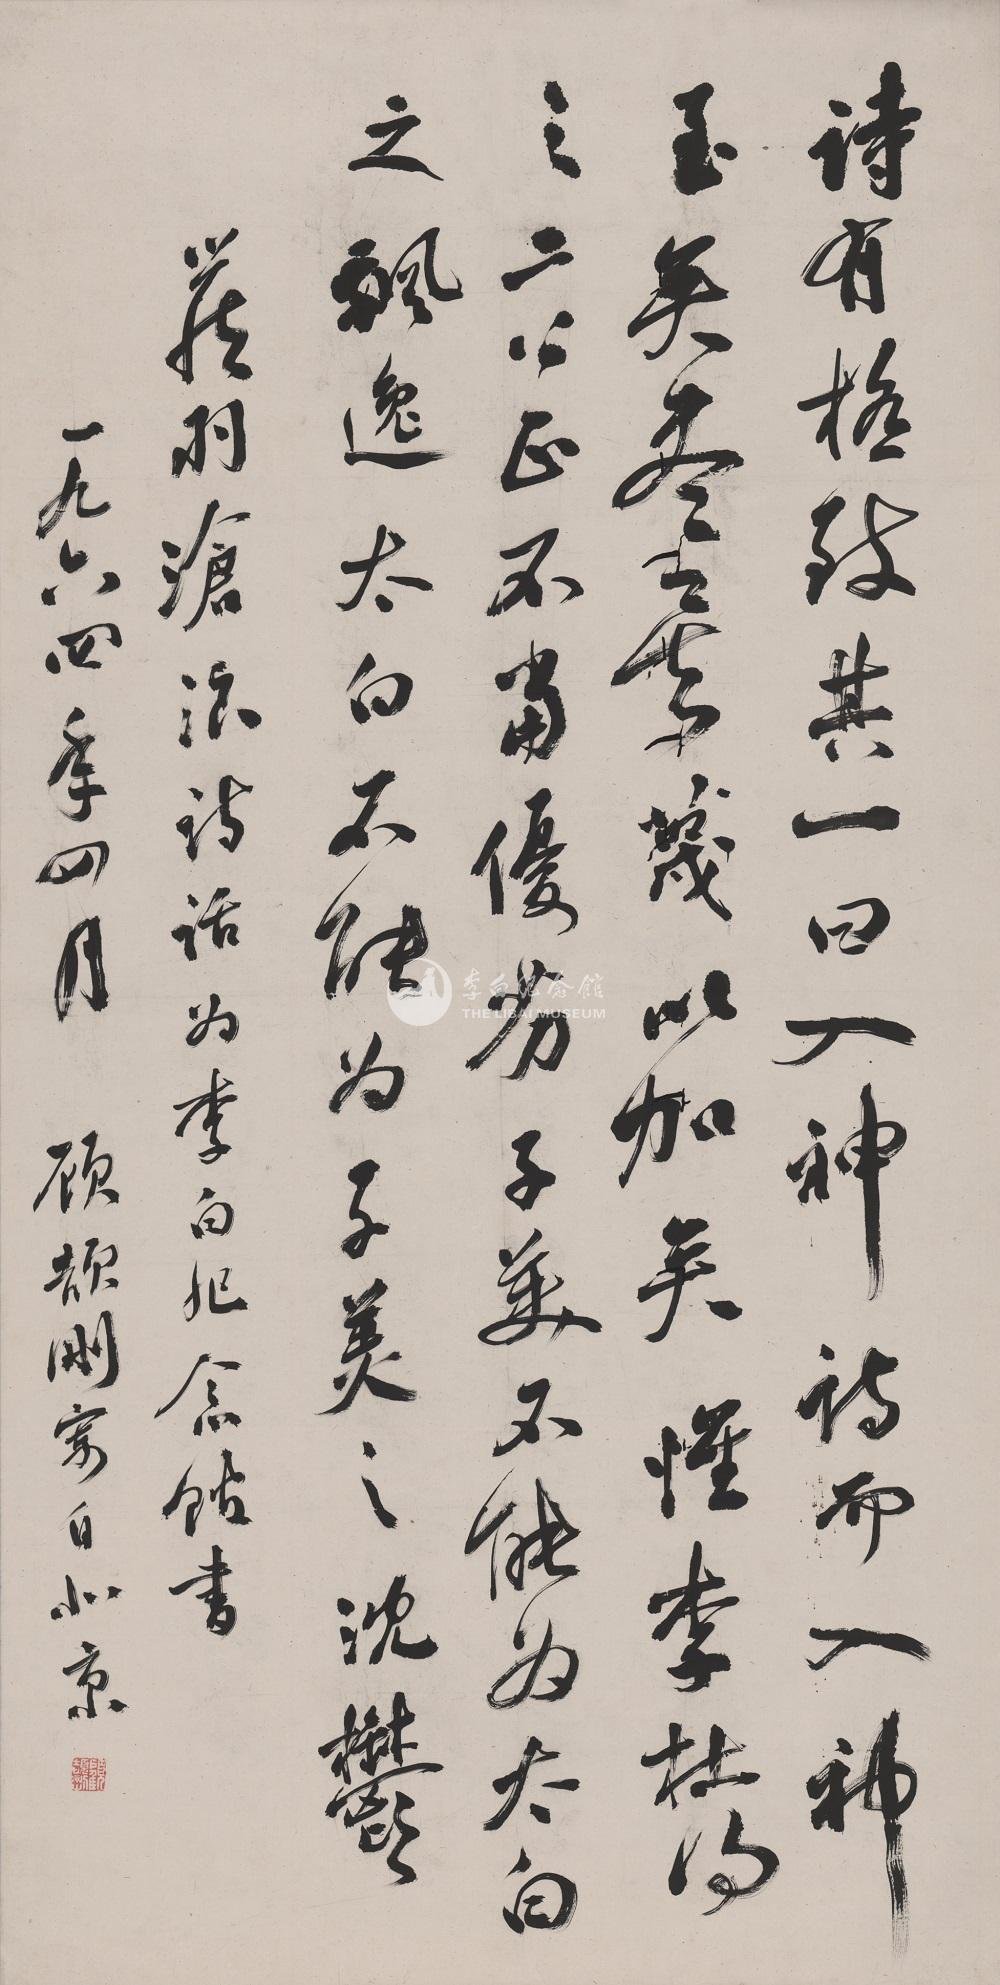 詩有極致其一曰入神詩而入神
至矣盡矣蔑以加矣惟李杜得
之二公正不當優劣子美不能为太白
之飄逸太白不能为子美之沈鬱
嚴羽滄浪詩話为李白紀念館書
一九六四年四月 顾頡刚寄自北京
李白纪念館
THE LIBAI MUSEUM